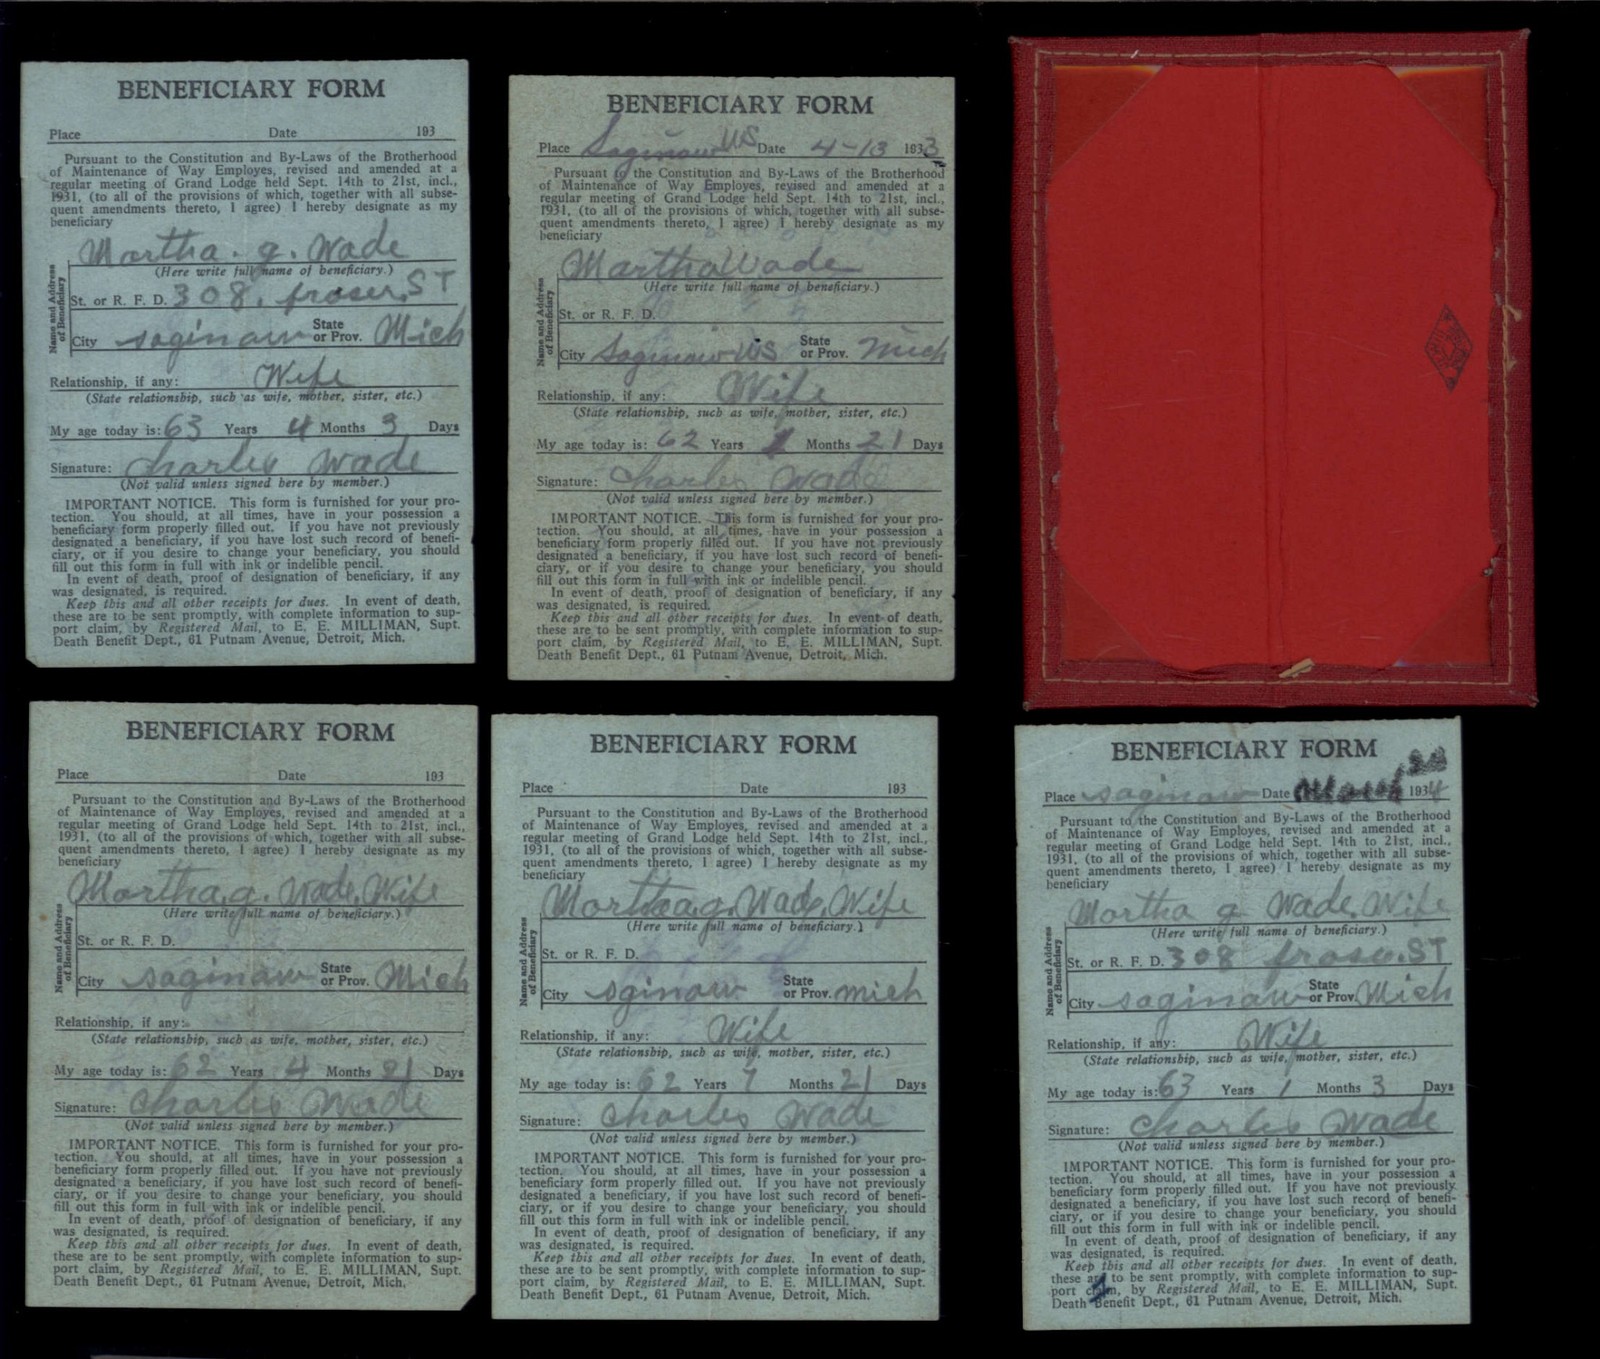 BENEFICIARY FORM
Place Date 193
Pursuant to the Constitution and By-Laws of the Brotherhood
of Maintenance of Way Employes, revised and amended at a
regular meeting of Grand Lodge held Sept. 14th to 21st, incl.,
1931, (to all of the provisions of which, together with all subse-
quent amendments thereto, I agree) I hereby designate as my
beneficiary
Martha. g. Wade
(Here write full name of beneficiary.)
Name and Address
of Beneficiary
St. or R. F. D. 308. fraser, ST
City saginaw State
or Prov. Mich
Relationship, if any: Wife
(State relationship, such as wife, mother, sister, etc.)
My age today is: 63 Years 4 Months 3 Days
Signature: charles Wade
(Not valid unless signed here by member.)
IMPORTANT NOTICE. This form is furnished for your pro-
tection. You should, at all times, have in your possession a
beneficiary form properly filled out. If you have not previously
designated a beneficiary, if you have lost such record of benefi-
ciary, or if you desire to change your beneficiary, you should
fill out this form in full with ink or indelible pencil.
In event of death, proof of designation of beneficiary, if any
was designated, is required.
Keep this and all other receipts for dues. In event of death,
these are to be sent promptly, with complete information to sup-
port claim, by Registered Mail, to E. E. MILLIMAN, Supt.
Death Benefit Dept., 61 Putnam Avenue, Detroit, Mich.
BENEFICIARY FORM
Place Saginaw WS Date 4-13 1933
Pursuant to the Constitution and By-Laws of the Brotherhood
of Maintenance of Way Employes, revised and amended at a
regular meeting of Grand Lodge held Sept. 14th to 21st, incl.,
1931, (to all of the provisions of which, together with all subse-
quent amendments thereto, I agree) I hereby designate as my
beneficiary
Martha Wade
(Here write full name of beneficiary.)
Name and Address
of Beneficiary
St. or R. F. D.
City Saginaw WS State
or Prov. Mich
Relationship, if any: Wife
(State relationship, such as wife, mother, sister, etc.)
My age today is: 62 Years Months 21 Days
Signature: charles Wade
(Not valid unless signed here by member.)
IMPORTANT NOTICE. This form is furnished for your pro-
tection. You should, at all times, have in your possession a
beneficiary form properly filled out. If you have not previously
designated a beneficiary, if you have lost such record of benefi-
ciary, or if you desire to change your beneficiary, you should
fill out this form in full with ink or indelible pencil.
In event of death, proof of designation of beneficiary, if any
was designated, is required.
Keep this and all other receipts for dues. In event of death,
these are to be sent promptly, with complete information to sup-
port claim, by Registered Mail, to E. E. MILLIMAN, Supt.
Death Benefit Dept., 61 Putnam Avenue, Detroit, Mich.
BENEFICIARY FORM
Place Date 193
Pursuant to the Constitution and By-Laws of the Brotherhood
of Maintenance of Way Employes, revised and amended at a
regular meeting of Grand Lodge held Sept. 14th to 21st, incl.,
1931, (to all of the provisions of which, together with all subse-
quent amendments thereto, I agree) I hereby designate as my
beneficiary
Martha. g. Wade, Wife
(Here write full name of beneficiary.)
Name and Address
of Beneficiary
St. or R. F. D.
City saginaw State
or Prov. Mich
Relationship, if any:
(State relationship, such as wife, mother, sister, etc.)
My age today is: 62 Years 4 Months 21 Days
Signature: charles Wade
(Not valid unless signed here by member.)
IMPORTANT NOTICE. This form is furnished for your pro-
tection. You should, at all times, have in your possession a
beneficiary form properly filled out. If you have not previously
designated a beneficiary, if you have lost such record of benefi-
ciary, or if you desire to change your beneficiary, you should
fill out this form in full with ink or indelible pencil.
In event of death, proof of designation of beneficiary, if any
was designated, is required.
Keep this and all other receipts for dues. In event of death,
these are to be sent promptly, with complete information to sup-
port claim, by Registered Mail, to E. E. MILLIMAN, Supt.
Death Benefit Dept., 61 Putnam Avenue, Detroit, Mich.
BENEFICIARY FORM
Place Date 193
Pursuant to the Constitution and By-Laws of the Brotherhood
of Maintenance of Way Employes, revised and amended at a
regular meeting of Grand Lodge held Sept. 14th to 21st, incl.,
1931, (to all of the provisions of which, together with all subse-
quent amendments thereto, I agree) I hereby designate as my
beneficiary
Martha. g. Wade, Wife
(Here write full name of beneficiary.)
Name and Address
of Beneficiary
St. or R. F. D.
City sginaw State
or Prov. mich
Relationship, if any: Wife
(State relationship, such as wife, mother, sister, etc.)
My age today is: 62 Years 7 Months 21 Days
Signature: charles Wade
(Not valid unless signed here by member.)
IMPORTANT NOTICE. This form is furnished for your pro-
tection. You should, at all times, have in your possession a
beneficiary form properly filled out. If you have not previously
designated a beneficiary, if you have lost such record of benefi-
ciary, or if you desire to change your beneficiary, you should
fill out this form in full with ink or indelible pencil.
In event of death, proof of designation of beneficiary, if any
was designated, is required.
Keep this and all other receipts for dues. In event of death,
these are to be sent promptly, with complete information to sup-
port claim, by Registered Mail, to E. E. MILLIMAN, Supt.
Death Benefit Dept., 61 Putnam Avenue, Detroit, Mich.
BENEFICIARY FORM
Place saginaw Date March 1934
Pursuant to the Constitution and By-Laws of the Brotherhood
of Maintenance of Way Employes, revised and amended at a
regular meeting of Grand Lodge held Sept. 14th to 21st, incl.,
1931, (to all of the provisions of which, together with all subse-
quent amendments thereto, I agree) I hereby designate as my
beneficiary
Martha g Wade, Wife
(Here write full name of beneficiary.)
Name and Address
of Beneficiary
St. or R. F. D. 308 ST
City saginaw State
or Prov. Mich
Relationship, if any: Wife
(State relationship, such as wife, mother, sister, etc.)
My age today is: 63 Years 1 Months 3 Days
Signature: charles Wade
(Not valid unless signed here by member.)
IMPORTANT NOTICE. This form is furnished for your pro-
tection. You should, at all times, have in your possession a
beneficiary form properly filled out. If you have not previously
designated a beneficiary, if you have lost such record of benefi-
ciary, or if you desire to change your beneficiary, you should
fill out this form in full with ink or indelible pencil.
In event of death, proof of designation of beneficiary, if any
was designated, is required.
Keep this and all other receipts for dues. In event of death,
these are to be sent promptly, with complete information to sup-
port claim, by Registered Mail, to E. E. MILLIMAN, Supt.
Death Benefit Dept., 61 Putnam Avenue, Detroit, Mich.